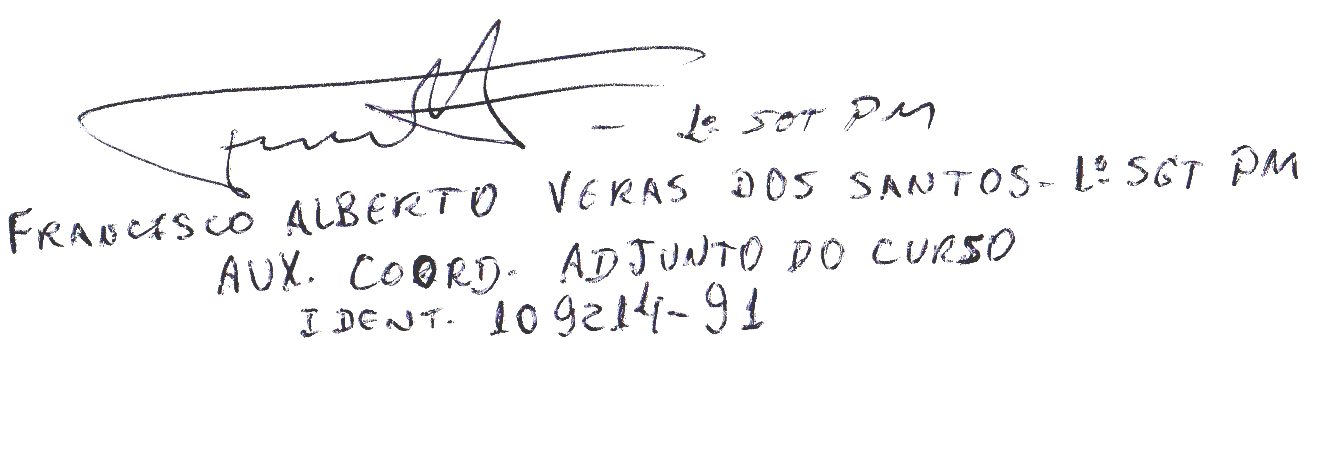 - 1º SGT PM
FRANCISCO ALBERTO VERAS DOS SANTOS - 1º SGT PM
AUX. COORD. ADJUNTO DO CURSO
IDENT. 109214-91